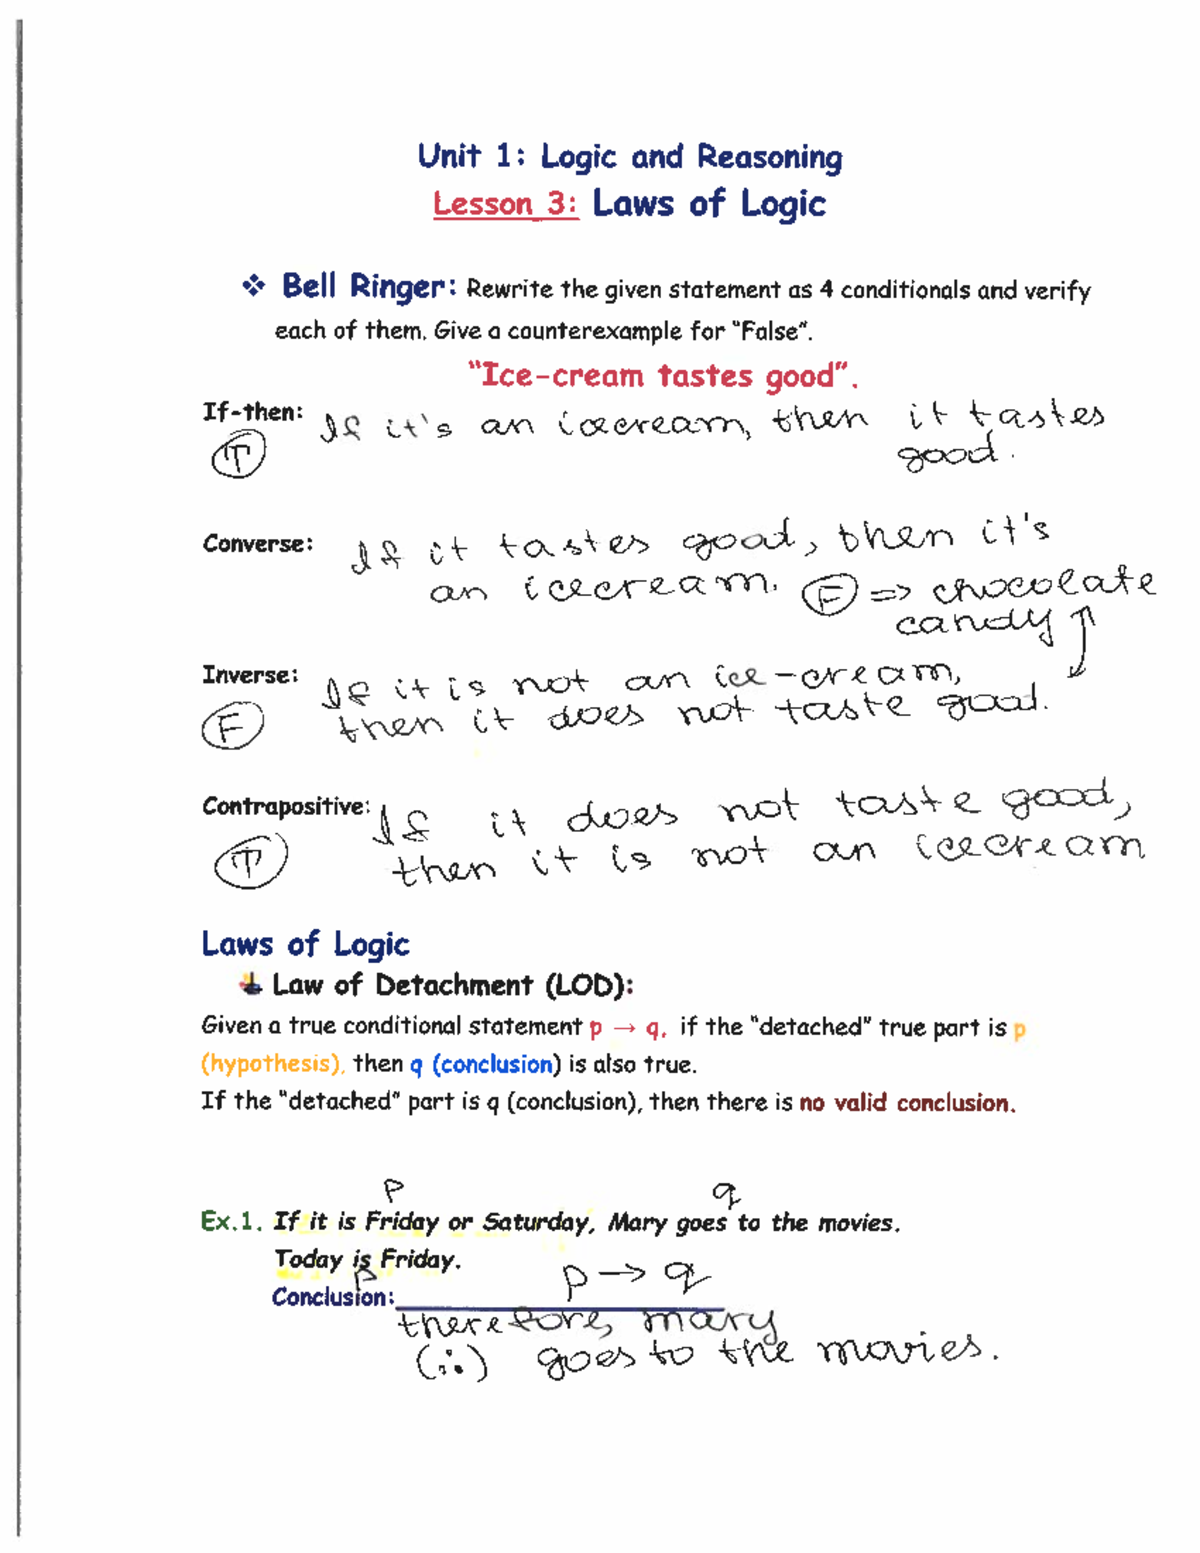 Unit 1: Logic and Reasoning
Lesson 3: Laws of Logic
❖ Bell Ringer: Rewrite the given statement as 4 conditionals and verify
each of them. Give a counterexample for "False".
"Ice-cream tastes good".
If-then: If it's an icecream, then it tastes
T good.
Converse: If it tastes good, then it's
an icecream. F => chocolate
candy
Inverse: If it is not an ice-cream,
F then it does not taste good.
Contrapositive: If it does not taste good,
T then it is not an icecream
Laws of Logic
Law of Detachment (LOD):
Given a true conditional statement p → q, if the "detached" true part is p
(hypothesis), then q (conclusion) is also true.
If the "detached" part is q (conclusion), then there is no valid conclusion.
p q
Ex.1. If it is Friday or Saturday, Mary goes to the movies.
Today is Friday.
p p → q
Conclusion:
therefore, mary
(∴) goes to the movies.